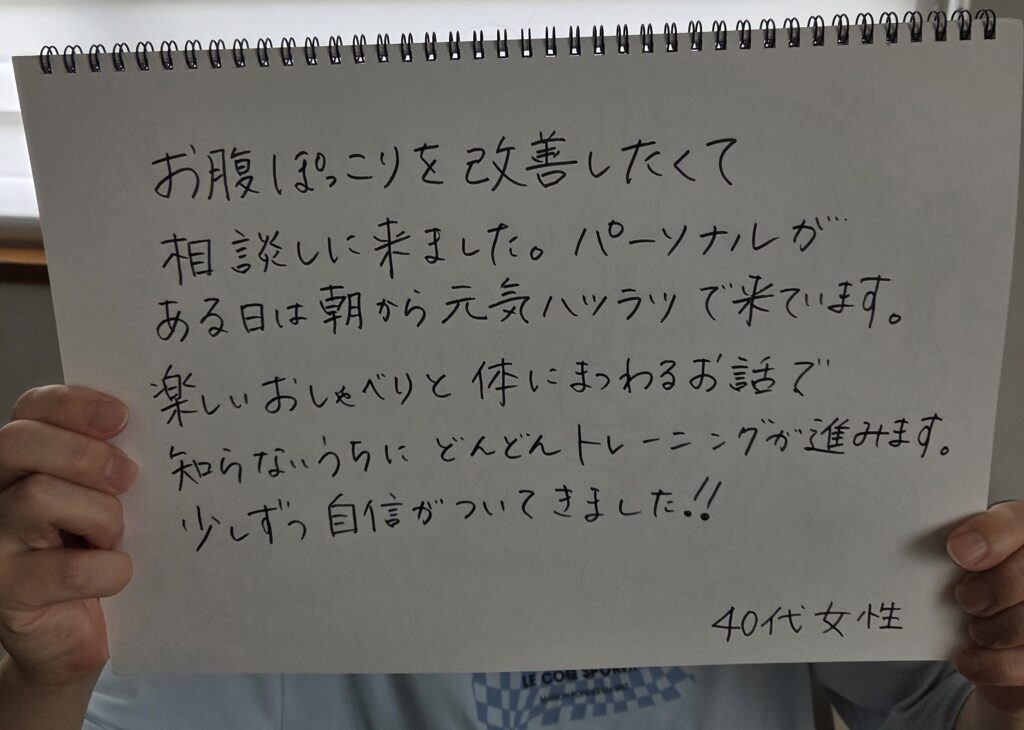 お腹ぽっこりを改善したくて
相談しに来ました。パーソナルが
ある日は朝から元気ハツラツで来ています。
楽しいおしゃべりと体にまつわるお話で
知らないうちにどんどんトレーニングが進みます。
少しずつ自信がついてきました!!
40代女性
LE COQ SPORTIF